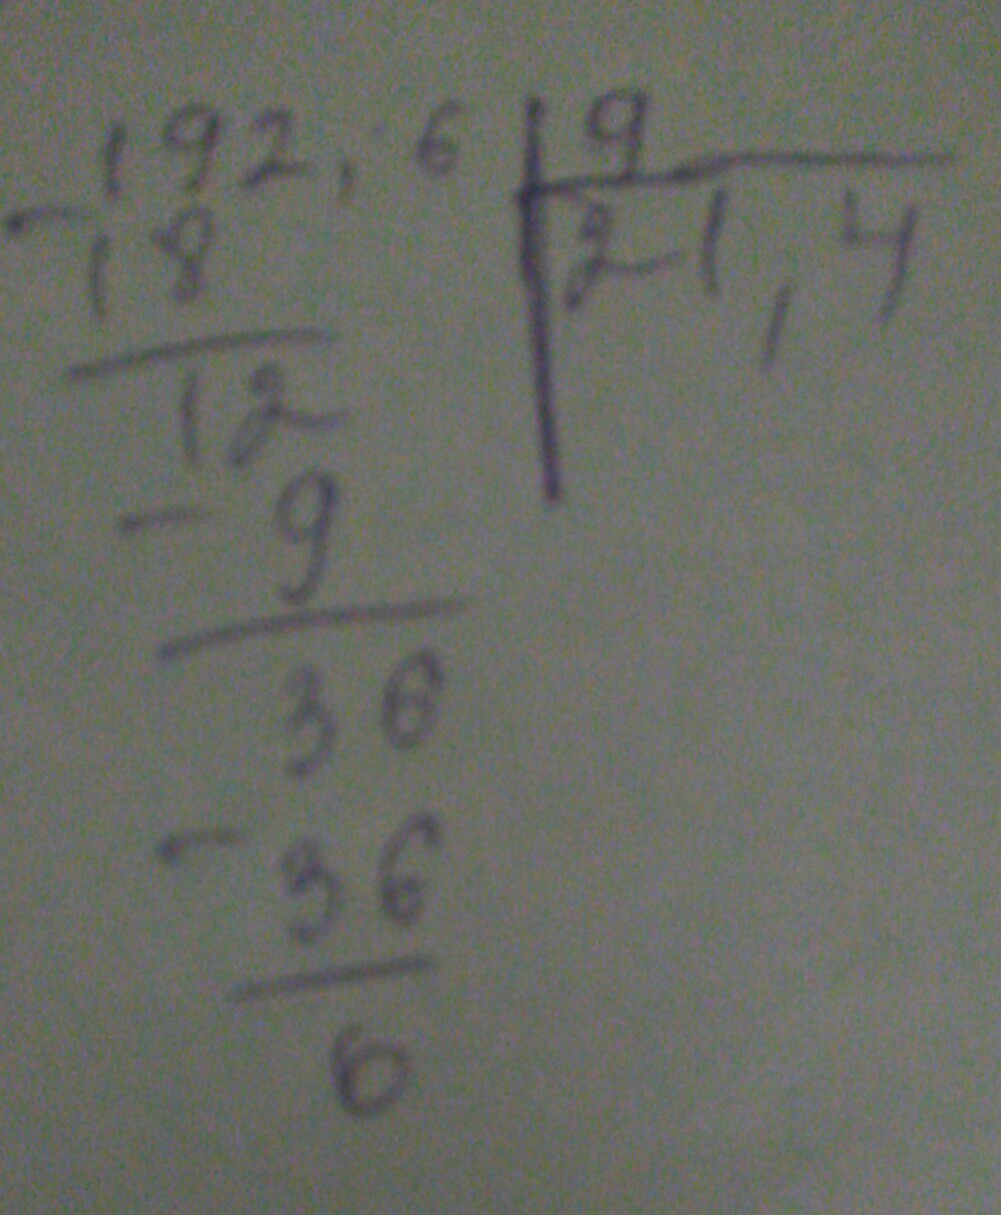 192,6 9
-18 21,4
12
-9
36
-36
0